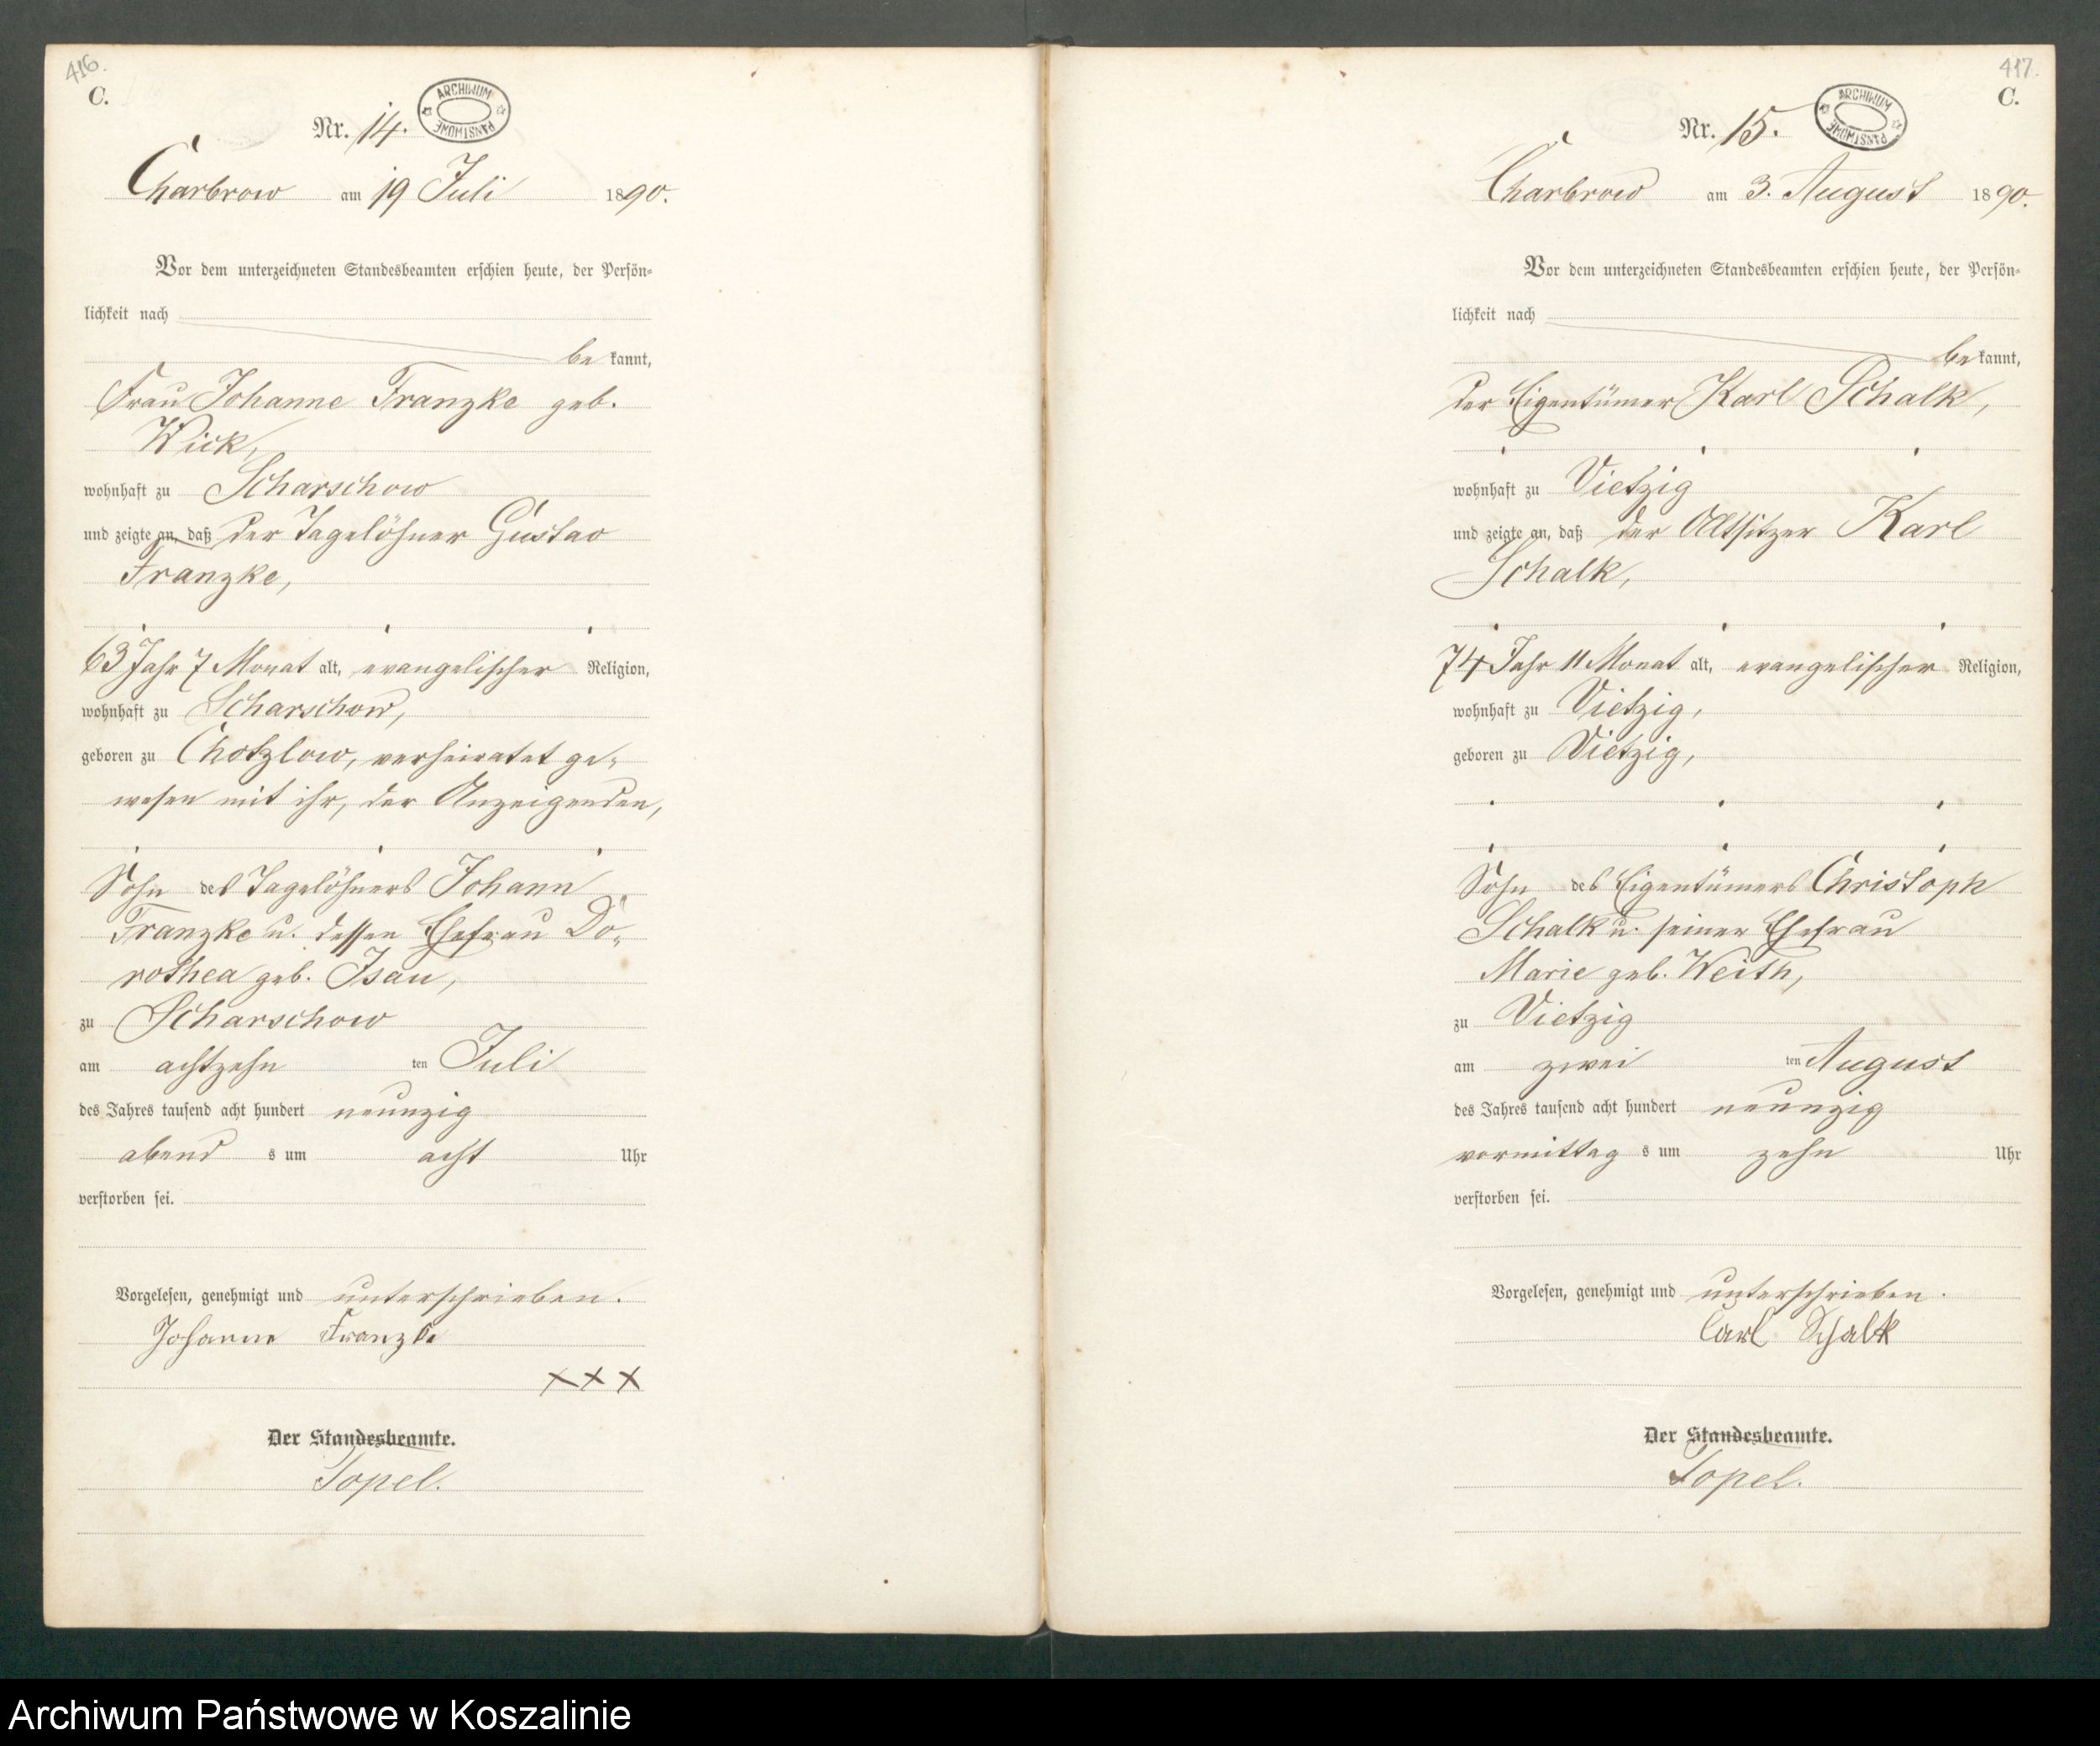 416.
C.
ARCHIWUM PAŃSTWOWE
Nr. 14.
Charbrow am 19 Juli 1890.
Vor dem unterzeichneten Standesbeamten erschien heute, der Persön-
lichkeit nach
be kannt,
Frau Johanne Franzke geb.
Wick,
wohnhaft zu Scharschow
und zeigte an, daß der Tagelöhner Gustav
Franzke,
63 Jahr 7 Monat alt, evangelischer Religion,
wohnhaft zu Scharschow,
geboren zu Chotzlow, verheiratet ge-
wesen mit ihr, der Anzeigenden,
Sohn des Tagelöhners Johann
Franzke u. dessen Ehefrau Do-
rothea geb. Isau,
zu Scharschow
am achtzehn ten Juli
des Jahres tausend acht hundert neunzig
abend s um acht Uhr
verstorben sei.
Vorgelesen, genehmigt und unterschrieben.
Johanne Franzke
XXX
Der Standesbeamte.
Topel.
417.
C.
ARCHIWUM PAŃSTWOWE
Nr. 15.
Charbrow am 3. August 1890.
Vor dem unterzeichneten Standesbeamten erschien heute, der Persön-
lichkeit nach
be kannt,
der Eigentümer Karl Schalk,
wohnhaft zu Vietzig
und zeigte an, daß der Altsitzer Karl
Schalk,
74 Jahr 11 Monat alt, evangelischer Religion,
wohnhaft zu Vietzig,
geboren zu Vietzig,
Sohn des Eigentümers Christoph
Schalk u. seiner Ehefrau
Marie geb. Weith,
zu Vietzig
am zwei ten August
des Jahres tausend acht hundert neunzig
vormittag s um zehn Uhr
verstorben sei.
Vorgelesen, genehmigt und unterschrieben.
Carl Schalk
Der Standesbeamte.
Topel.
Archiwum Państwowe w Koszalinie